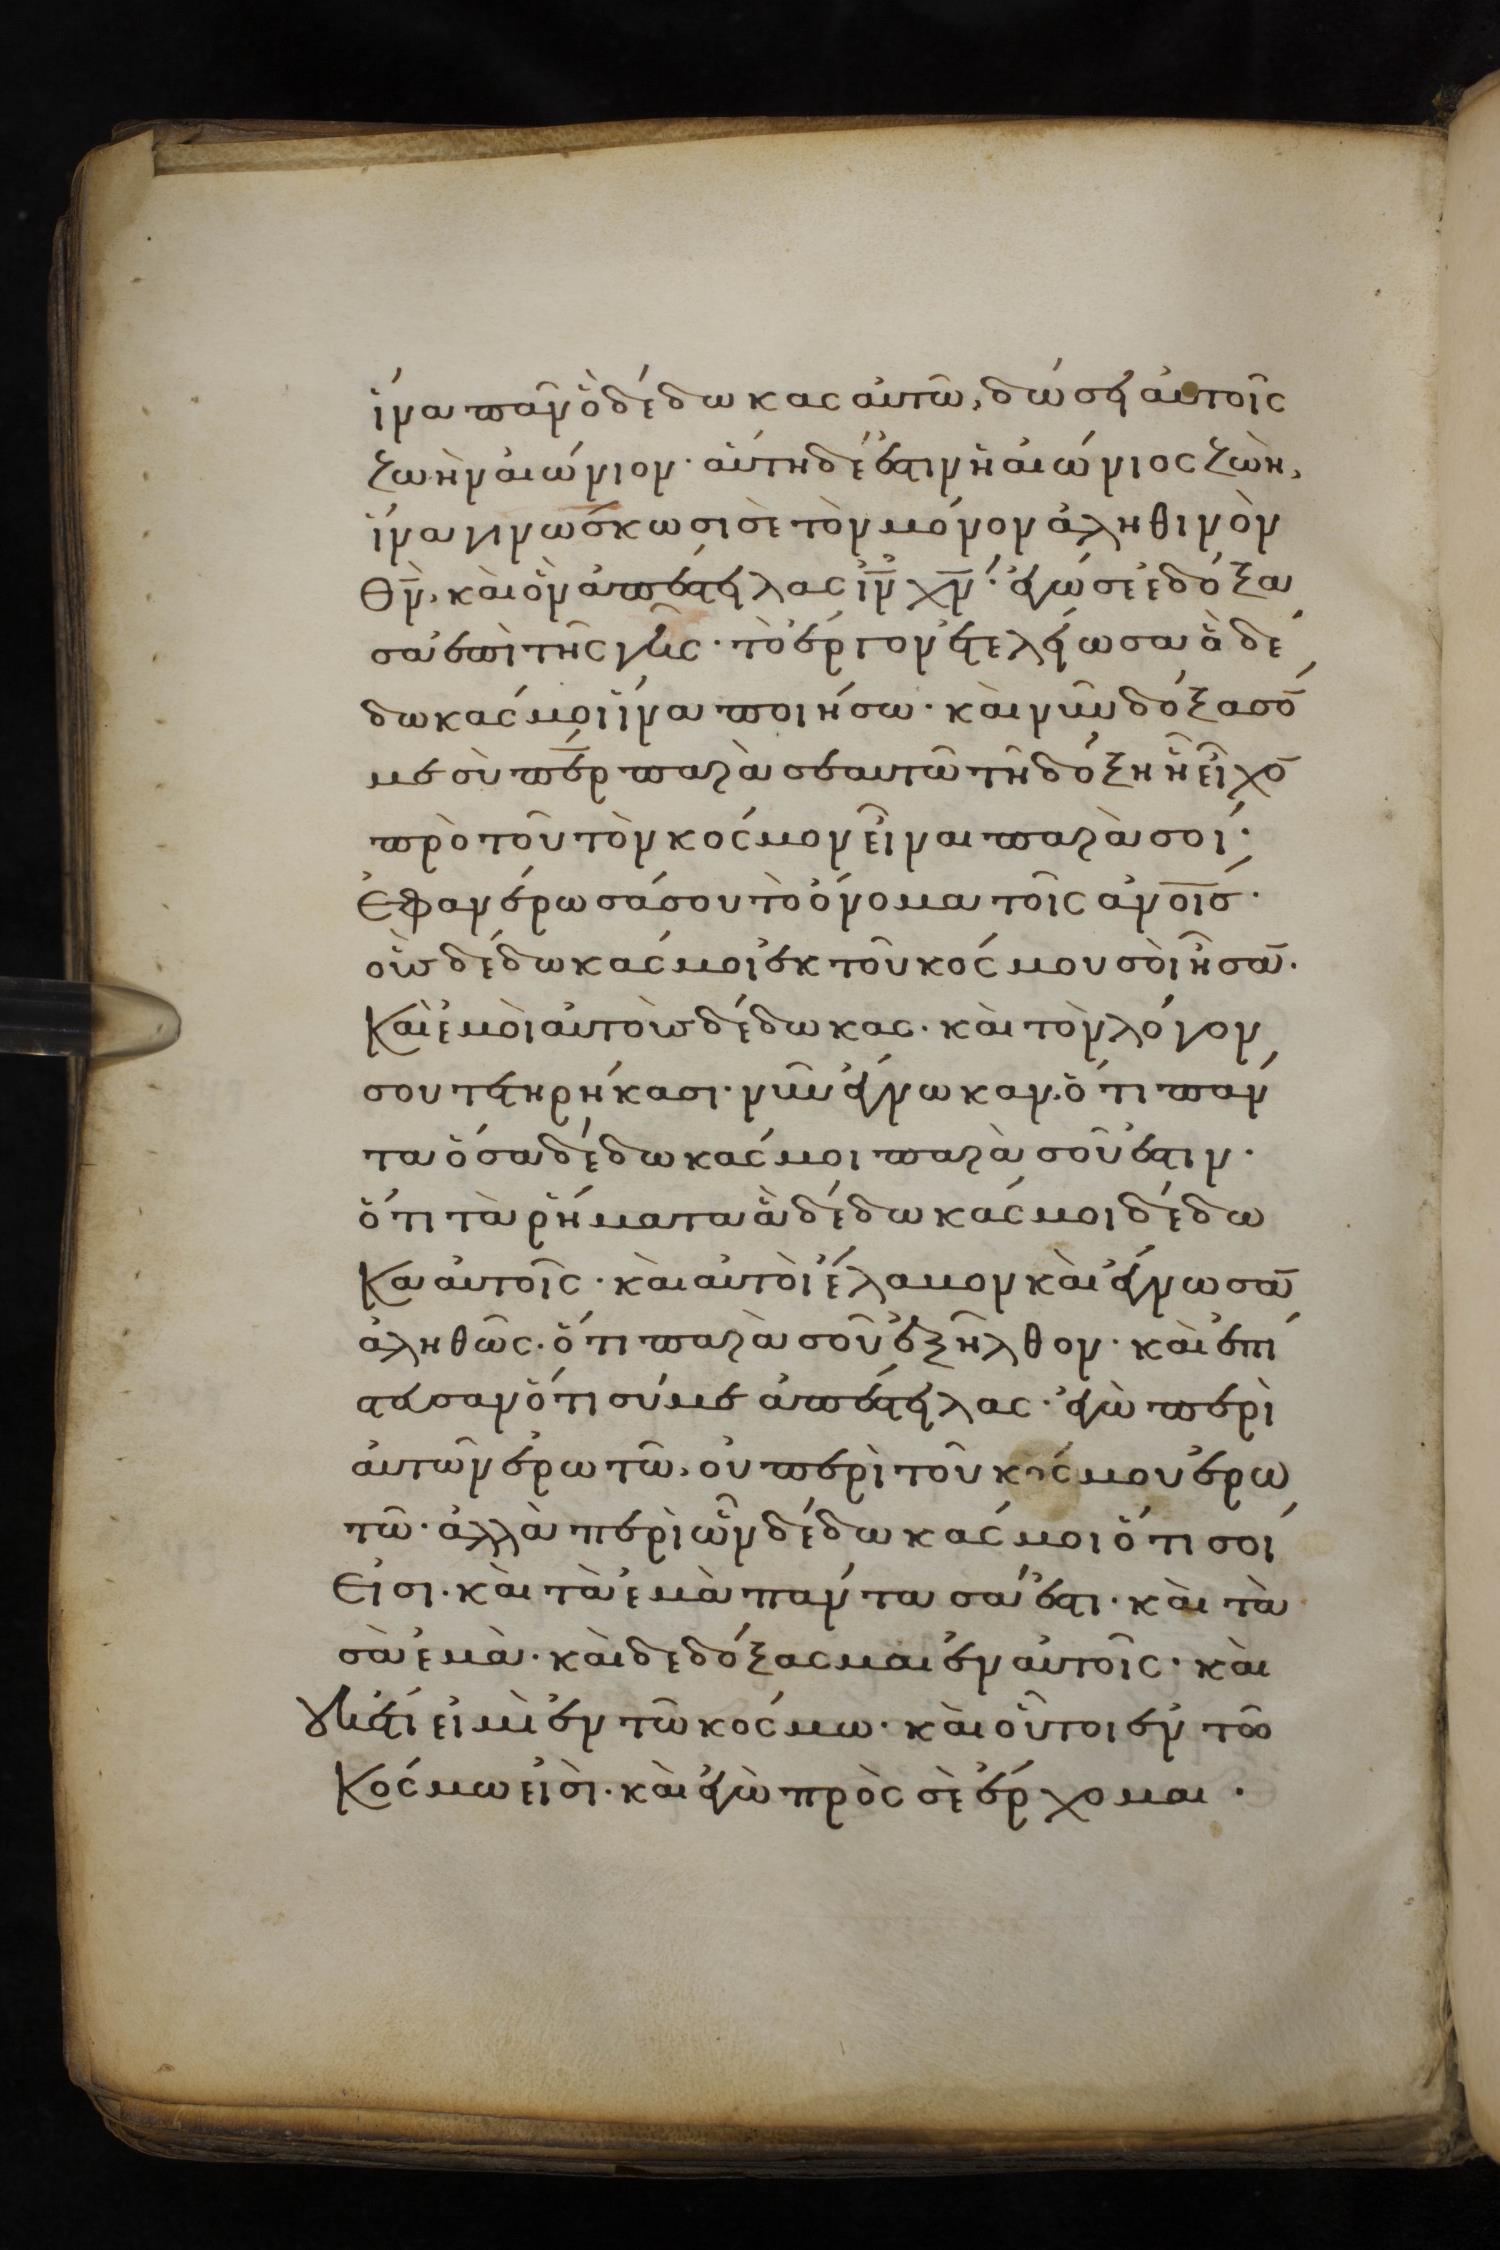 ἵνα πᾶν ὃ δέδωκας αὐτῶ, δώσει αὐτοῖς
ζωὴν αἰώνιον· αὕτη δέ ἐστιν ἡ αἰώνιος ζωὴ,
ἵνα γινώσκωσι σὲ τὸν μόνον ἀληθινὸν
θν̅, καὶ ὃν ἀπέστειλας ιν̅ χν̅· ἐγώ σε ἐδόξα
σα ἐπὶ τῆς γῆς· τὸ ἔργον ἐτελείωσα ὃ δέ
δωκάς μοι ἵνα ποιήσω· καὶ νῦν δόξασό̅
με σὺ πε̅ρ παρὰ σεαυτῶ τῆ δόξη ἧ εἶχο̅
πρὸ τοῦ τὸν κόσμον εἶναι παρὰ σοί·
Ἐφανέρωσά σου τὸ ὄνομα τοῖς ἀν̅ο̅ι̅σ·
οὓς δέδωκάς μοι ἐκ τοῦ κόσμου σοὶ ἦσα̅·
Καὶ ἐμοὶ αὐτοὺς δέδωκας· καὶ τὸν λόγον
σου τετηρήκασι· νῦν ἔγνωκαν, ὅτι πάν
τα ὅσα δέδωκάς μοι παρὰ σοῦ ἐστιν·
ὅτι τὰ ῥήματα ἃ δέδωκάς μοι δέδω
Κα αὐτοῖς· καὶ αὐτοὶ ἔλαβον καὶ ἔγνωσα̅
ἀληθῶς· ὅτι παρὰ σοῦ ἐξῆλθον· καὶ ἐπί
στευσαν ὅτι σύ με ἀπέστειλας· ἐγὼ περὶ
αὐτῶν ἐρωτῶ, οὐ περὶ τοῦ κόσμου ἐρω
τῶ· ἀλλὰ περὶ ὧν δέδωκάς μοι ὅτι σοί
Εἰσι· καὶ τὰ ἐμὰ πάντα σά ἐστι· καὶ τὰ
σὰ ἐμὰ· καὶ δεδόξασμαι ἐν αὐτοῖς· καὶ
οὐκέτι εἰμὶ ἐν τῶ κόσμω· καὶ οὗτοι ἐν τῶ
Κόσμω εἰσὶ· καὶ ἐγὼ πρὸς σὲ ἔρχομαι·